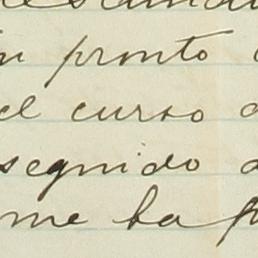 pronto
el curso
seguido
me ha